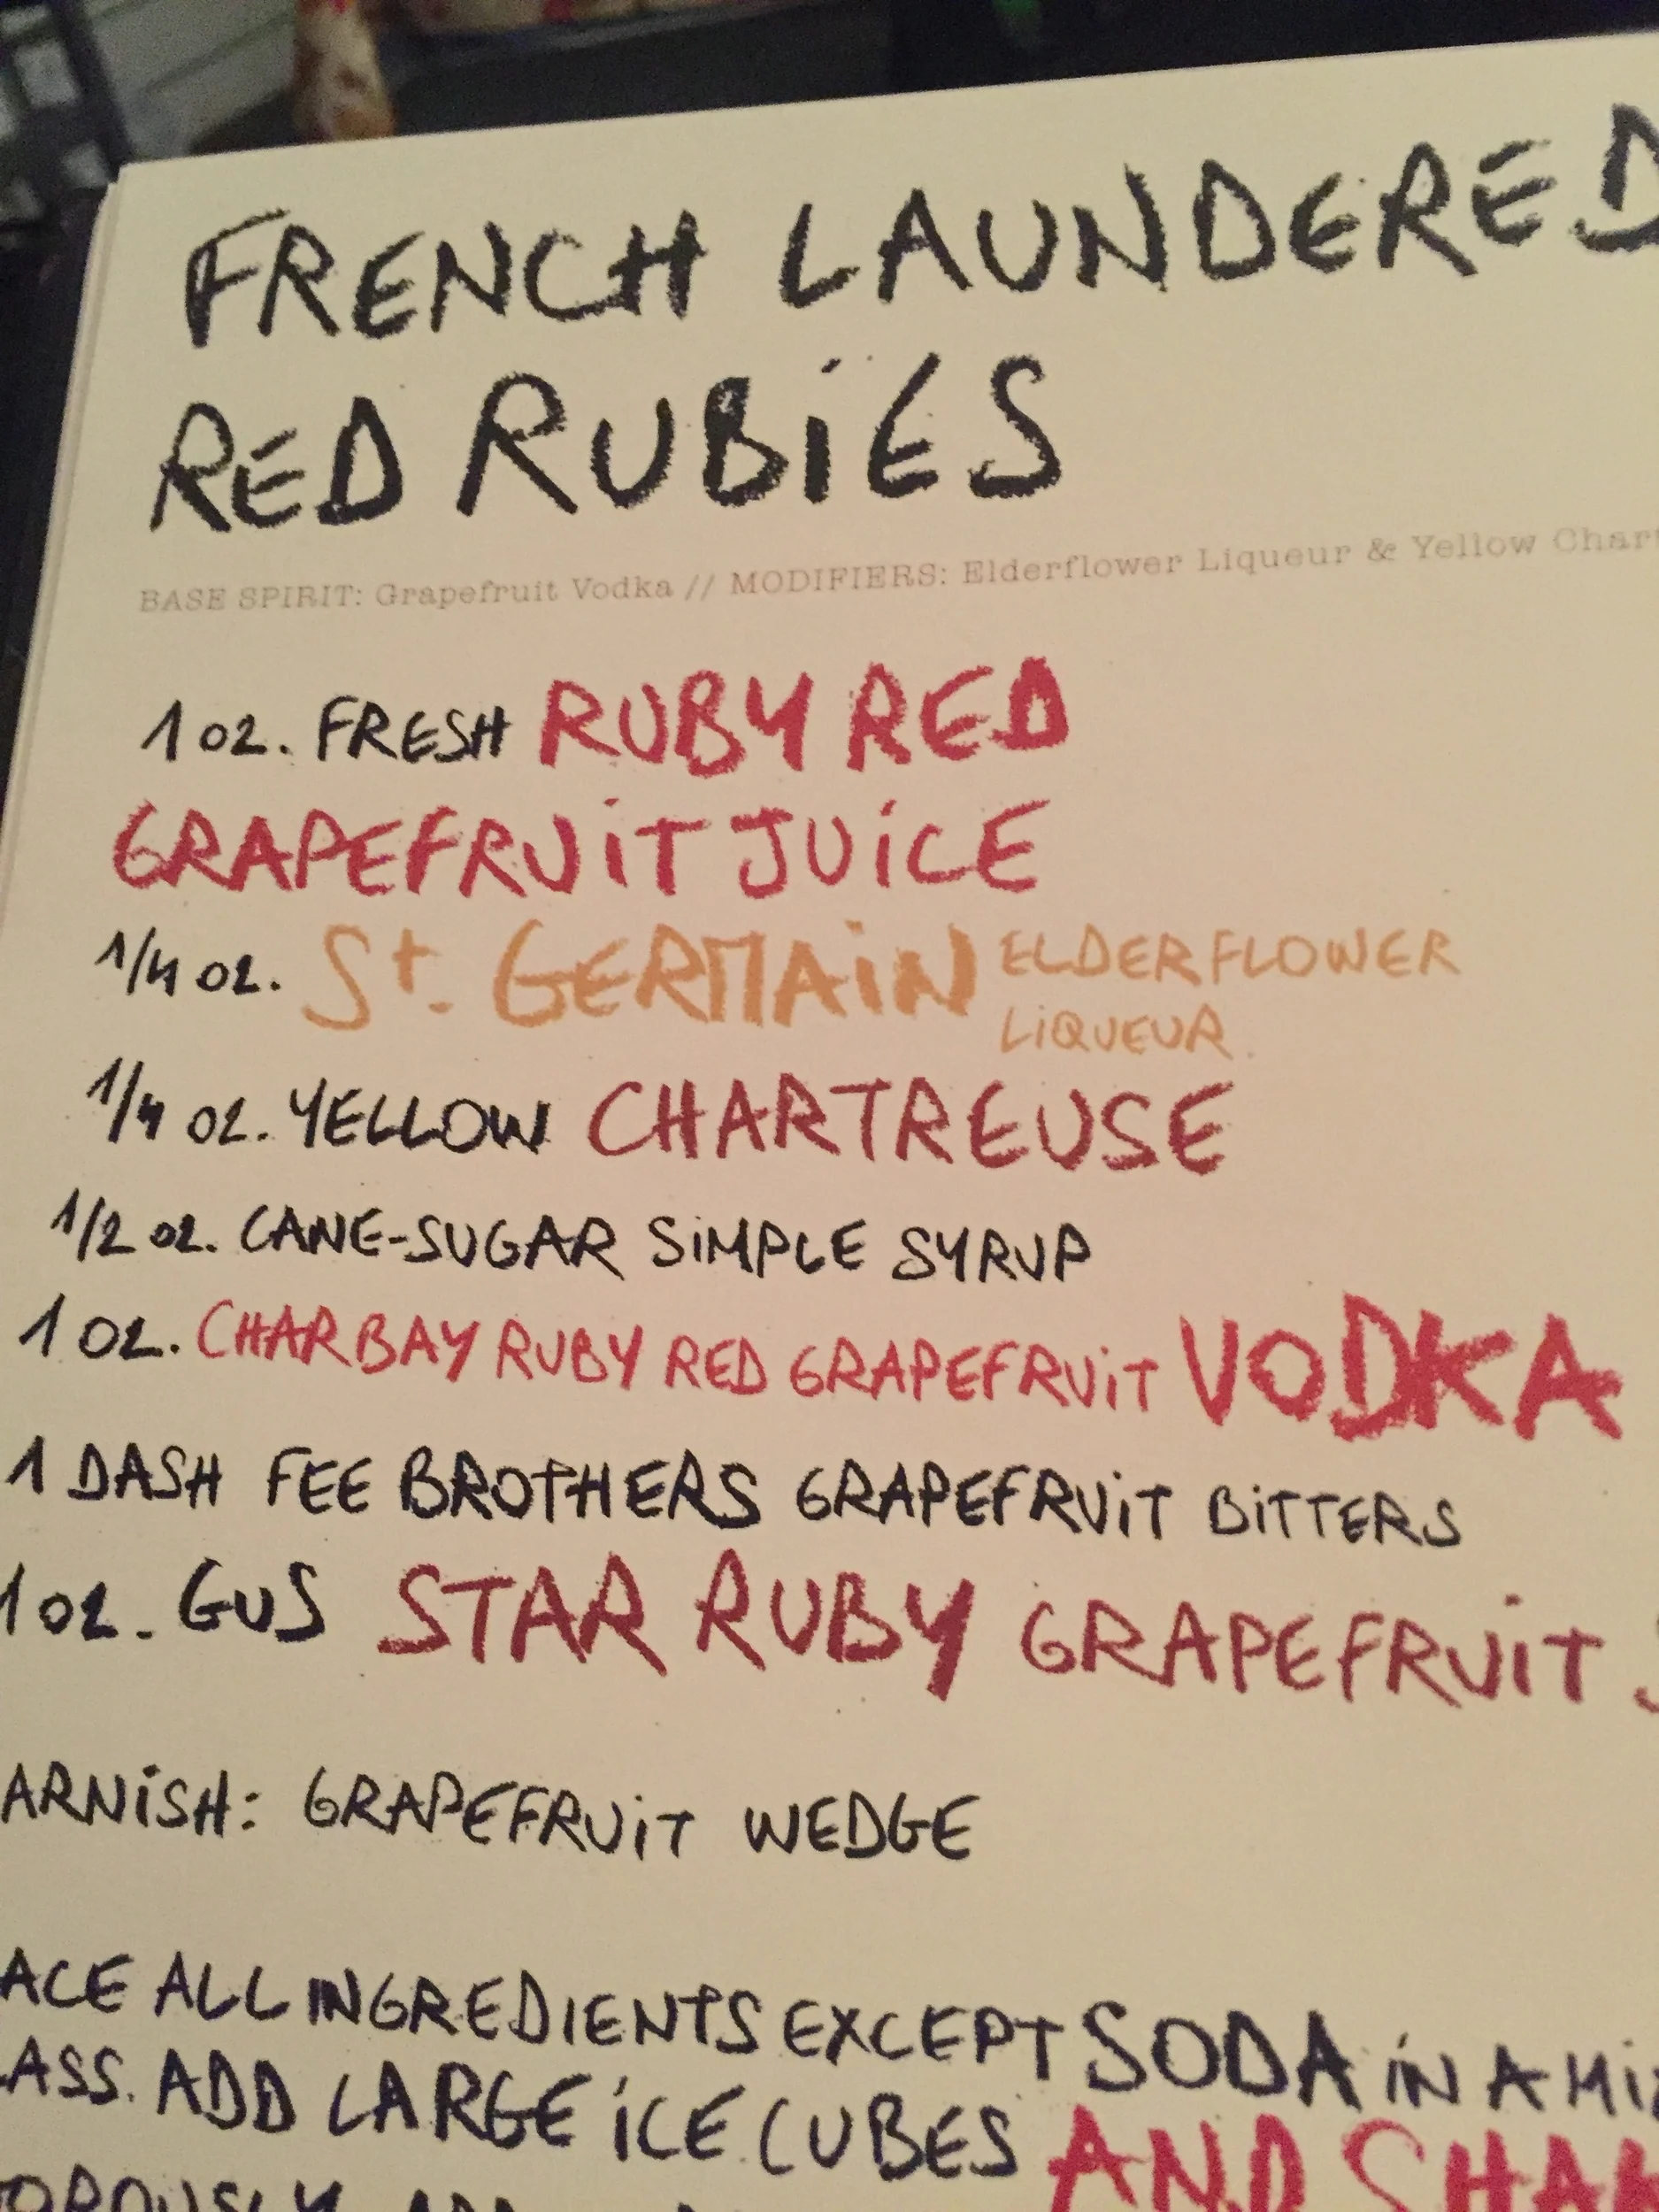 FRENCH LAUNDERED
RED RUBIES
BASE SPIRIT: Grapefruit Vodka // MODIFIERS: Elderflower Liqueur & Yellow Chart
1 oz. FRESH RUBY RED
GRAPEFRUIT JUICE
1/4 oz. St. GERMAIN ELDERFLOWER
LIQUEUR
1/4 oz. YELLOW CHARTREUSE
1/2 oz. CANE-SUGAR SIMPLE SYRUP
1 oz. CHARBAY RUBY RED GRAPEFRUIT VODKA
1 DASH FEE BROTHERS GRAPEFRUIT BITTERS
1 oz. GUS STAR RUBY GRAPEFRUIT
ARNISH: GRAPEFRUIT WEDGE
ACE ALL INGREDIENTS EXCEPT SODA IN A MI
ASS. ADD LARGE ICE CUBES AND SHAK